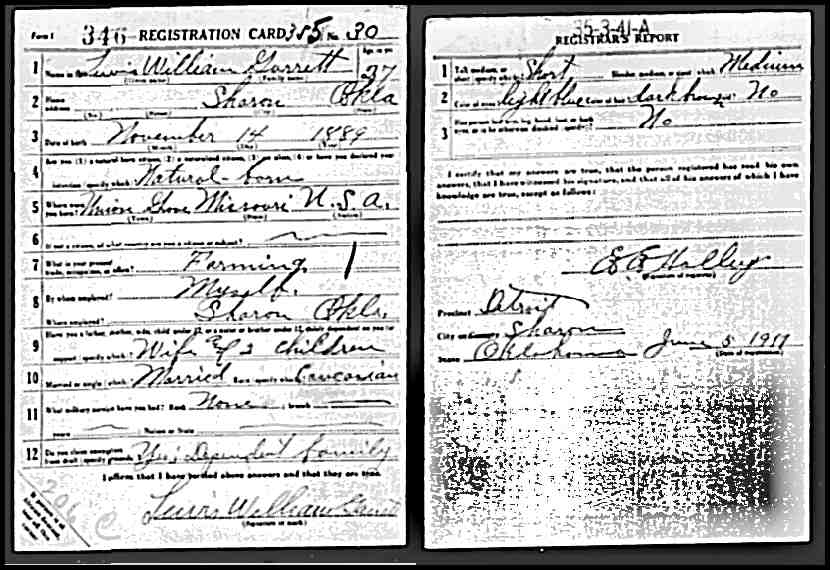 Form 1 346 REGISTRATION CARD 385 No. 30
1 Lewis William Garrett 27
2 Home address Sharon Okla
3 Date of birth November 14 1889
4 Are you (1) a natural-born citizen, (2) a naturalized citizen, (3) an alien, (4) or have you declared your
intention (specify which)? Natural-born
5 Where were you born? Union Grove Missouri U.S.A.
(Town) (State) (Nation)
6 If not a citizen, of what country are you a citizen or subject?
7 What is your present trade, occupation, or office? Farming
8 By whom employed? Myself.
Where employed? Sharon Okla.
9 Have you a father, mother, wife, child under 12, or a sister or brother under 12, solely dependent on you for
support (specify which)? Wife & 2 children
10 Married or single (which)? Married Race (specify which)? Caucasian
11 What military service have you had? Rank None branch
years Nation or State
12 Do you claim exemption from draft (specify grounds)? Yes; Dependent family
I affirm that I have verified above answers and that they are true.
Lewis William Garrett
(Signature or mark)
206 C
35-3-41-A
REGISTRAR'S REPORT
1 Tall, medium, or short (specify which)? Short Slender, medium, or stout (which)? Medium
2 Color of eyes? light blue Color of hair? dark brown No
3 No
I certify that my answers are true, that the person registered has read his own
answers, that I have witnessed his signature, and that all of his answers of which I have
knowledge are true, except as follows:
(Signature of registrar)
Precinct Detroit
City or County Sharon
State Oklahoma June 5 1917
(Date of registration)